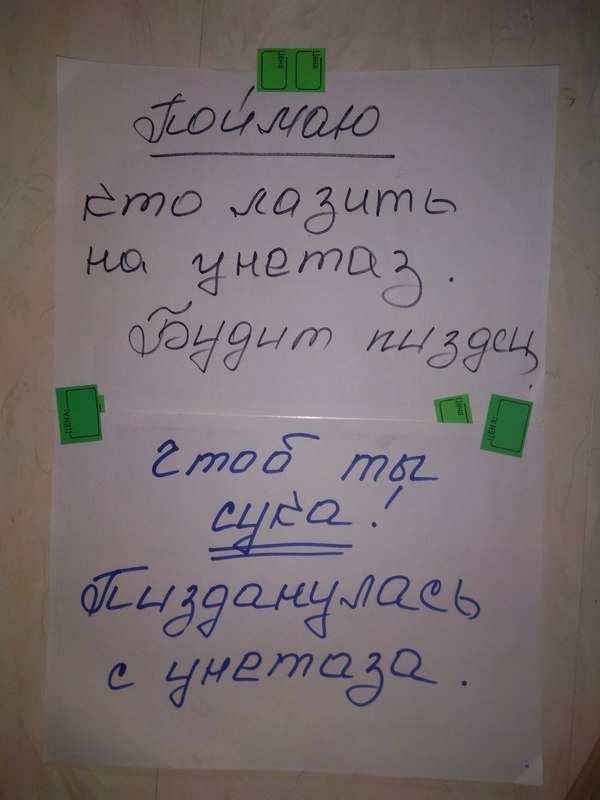 цена цена
Поймаю
кто лазить
на унетаз.
Будит пиздец.
ЦЕНА: цена ЦЕНА:
чтоб ты
сука!
Пизданулась
с унетаза.